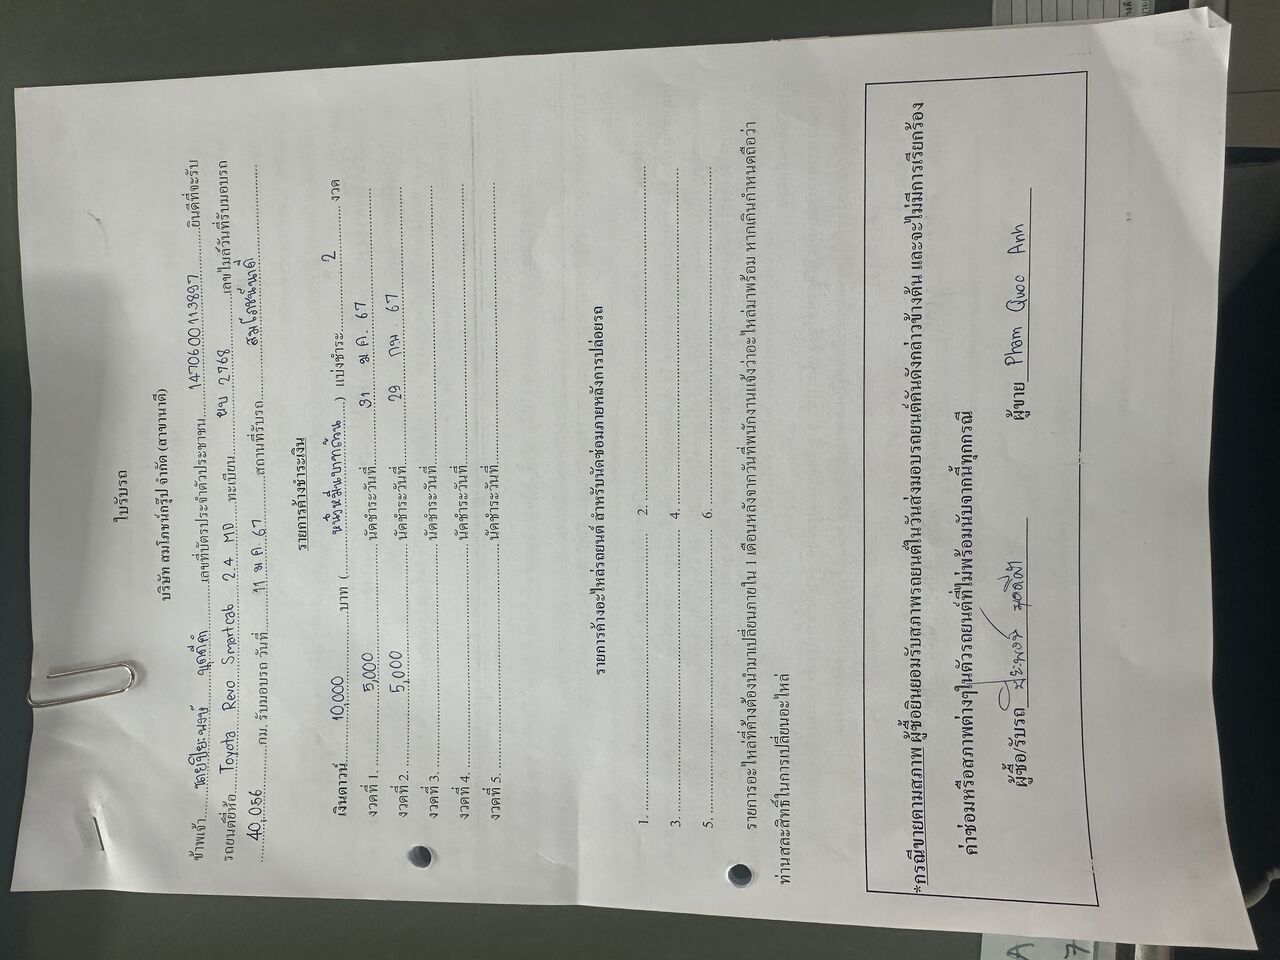 ใบรับรถ
บริษัท สมโภชน์กรุ๊ป จำกัด (สาขานาดี)
ข้าพเจ้า นายปิยะพงษ์ เลขที่บัตรประจำตัวประชาชน 1470600113897 ยินดีที่จะรับ
รถยนต์ยี่ห้อ Toyota Revo Smartcab 2.4 MD ทะเบียน ผบ 2768 เลขไมล์วันที่รับมอบรถ
40,056 กม. รับมอบรถ วันที่ 11 ม.ค. 67 สถานที่รับรถ สมโภชน์นาดี
รายการค้างชำระเงิน
เงินดาวน์ 10,000 บาท (หนึ่งหมื่นบาทถ้วน) แบ่งชำระ 2 งวด
งวดที่ 1. 5,000 นัดชำระวันที่ 31 ม.ค. 67
งวดที่ 2. 5,000 นัดชำระวันที่ 29 กพ. 67
งวดที่ 3. นัดชำระวันที่
งวดที่ 4. นัดชำระวันที่
งวดที่ 5. นัดชำระวันที่
รายการค้างอะไหล่รถยนต์ สำหรับนัดซ่อมภายหลังการปล่อยรถ
1. 2.
3. 4.
5. 6.
รายการอะไหล่ที่ค้างต้องนำมาเปลี่ยนภายใน 1 เดือนหลังจากวันที่พนักงานแจ้งว่าอะไหล่มาพร้อม หากเกินกำหนดถือว่า
ท่านสละสิทธิ์ในการเปลี่ยนอะไหล่
*กรณีขายตามสภาพ ผู้ซื้อยินยอมรับสภาพรถยนต์ในวันส่งมอบรถยนต์คันดังกล่าวข้างต้น และจะไม่มีการเรียกร้อง
ค่าซ่อมหรือสภาพต่างๆในตัวรถยนต์ที่ไม่พร้อมนับจากนี้ทุกกรณี
ผู้ซื้อ/รับรถ ปิยะพงษ์ ผู้ขาย Pham Quoc Anh